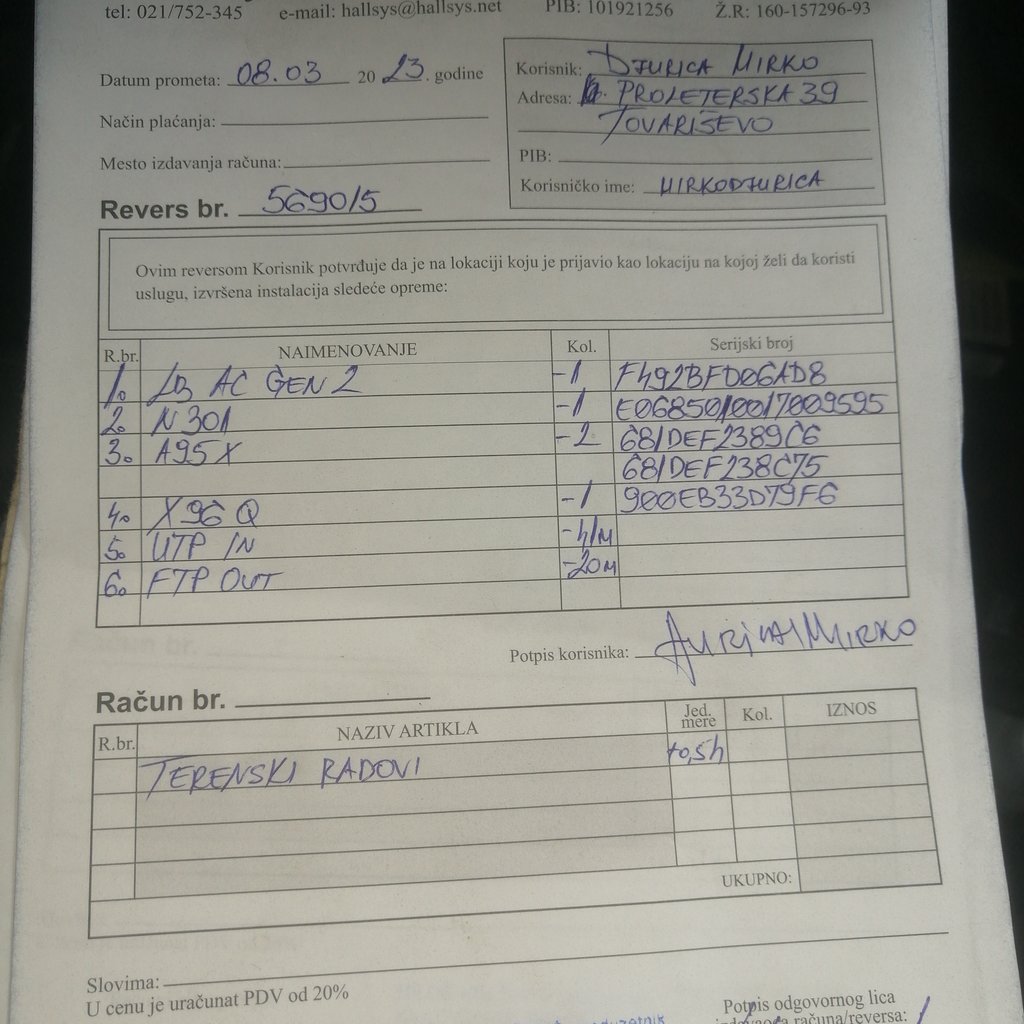 tel: 021/752-345 e-mail: hallsys@hallsys.net PIB: 101921256 Ž.R: 160-157296-93
Datum prometa: 08.03 2023. godine
Način plaćanja:
Mesto izdavanja računa:
Korisnik: DJURICA MIRKO
Adresa: PROLETERSKA 39
TOVARIŠEVO
PIB:
Korisničko ime: MIRKODJURICA
Revers br. 5690/5
Ovim reversom Korisnik potvrđuje da je na lokaciji koju je prijavio kao lokaciju na kojoj želi da koristi
uslugu, izvršena instalacija sledeće opreme:
R.br. NAIMENOVANJE Kol. Serijski broj
1. LB AC GEN 2 -1 F492BFD06AD8
2. N301 -1 E0685010017009595
3. A95X -2 681DEF2389C6
681DEF238C75
4. X96Q -1 900EB33D79F6
5. UTP IN -41M
6. FTP OUT -20M
Potpis korisnika: Djurica Mirko
Račun br.
R.br. NAZIV ARTIKLA Jed. mere Kol. IZNOS
TERENSKI RADOVI +0,5h
UKUPNO:
Slovima:
U cenu je uračunat PDV od 20%
Potpis odgovornog lica
računa/reversa: